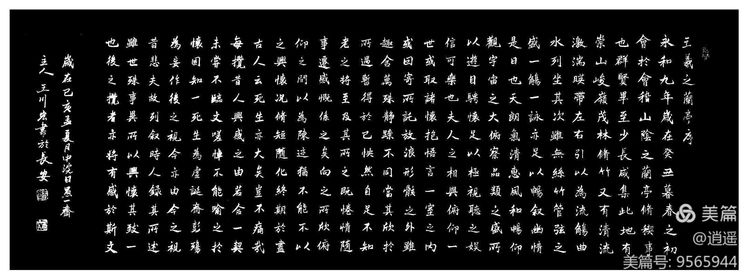 王羲之蘭亭序
永和九年歲在癸丑暮春之初
會於會稽山陰之蘭亭脩稧事
也群賢畢至少長咸集此地有
崇山峻嶺茂林脩竹又有清流
激湍暎帶左右引以為流觴曲
水列坐其次雖無絲竹管弦之
盛一觴一詠亦足以暢敘幽情
是日也天朗氣清惠風和暢仰
觀宇宙之大俯察品類之盛所
以遊目騁懷足以極視聽之娛
信可樂也夫人之相與俯仰一
世或取諸懷抱悟言一室之內
或因寄所託放浪形骸之外雖
趣舍萬殊靜躁不同當其欣於
所遇暫得於己快然自足不知
老之將至及其所之既惓情隨
事遷感慨係之矣向之所欣俯
仰之間以為陳迹猶不能不以
之興懷況脩短隨化終期於盡
古人云死生亦大矣豈不痛哉
每攬昔人興感之由若合一契
未嘗不臨文嗟悼不能喻之於
懷固知一死生為虛誕齊彭殤
為妄作後之視今亦由今之視
昔悲夫故列敘時人錄其所述
雖世殊事異所以興懷其致一
也後之攬者亦將有感於斯文
歲在己亥孟夏月中浣日墨一齋
主人王川書於長安
美篇
@逍遥
美篇号: 9565944